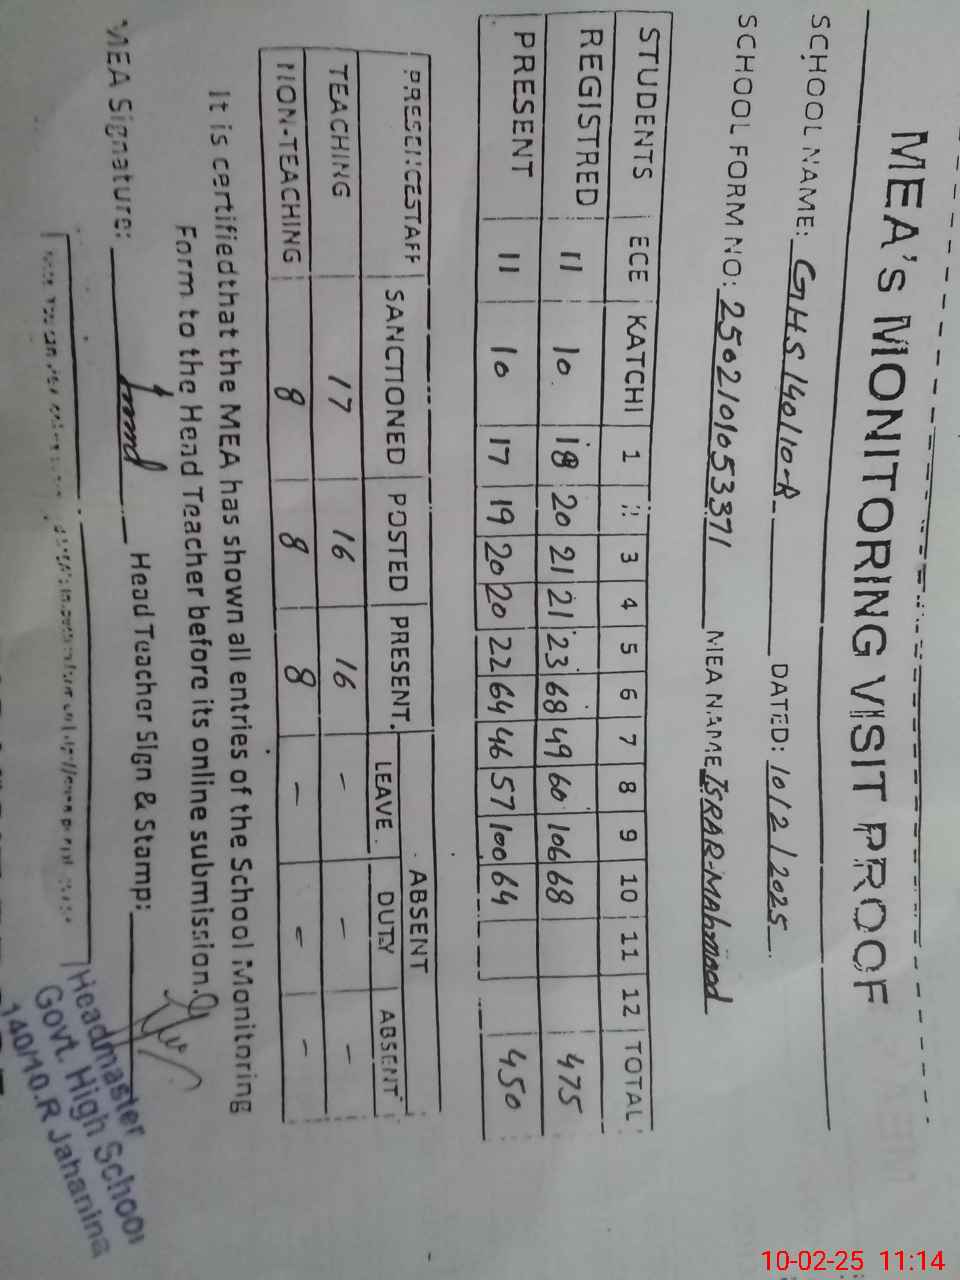 MEA'S MONITORING VISIT PROOF
SCHOOL NAME: GHS 140/10-R DATED: 10/2/2025
SCHOOL FORM NO: 2502101053371 MEA NAME ISRAR-Mahmood
STUDENTS ECE KATCHI 1 2 3 4 5 6 7 8 9 10 11 12 TOTAL
REGISTRED 11 10 18 20 21 21 23 68 49 60 106 68 475
PRESENT 11 10 17 19 20 20 22 64 46 57 100 64 450
PRESENCESTAFF SANCTIONED POSTED PRESENT ABSENT
LEAVE DUTY ABSENT
TEACHING 17 16 16 - - -
NON-TEACHING 8 8 8 - - -
It is certified that the MEA has shown all entries of the School Monitoring
Form to the Head Teacher before its online submission.
MEA Signature: Head Teacher Sign & Stamp:
Headmaster
Govt. High School
140/10.R Jahanina
10-02-25 11:14